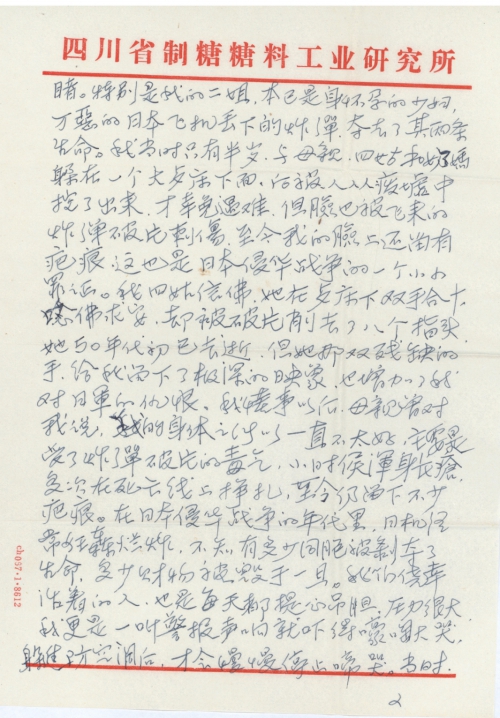 四川省制糖糖料工业研究所
睹。特别是我的二姐,本已是身怀孕的少妇,
万恶的日本飞机丢下的炸弹夺去了其两条
生命。我当时只有半岁,与母亲、四姑和奶妈
躲在一个大床下面,后被人从废墟中
挖了出来,才幸免遇难,但脸也被飞来的
炸弹破片刺伤,至今我的脸上还留有
疤痕这也是日本侵华战争的一个小小
罪证。我四姑信佛,她在床下双手合十
念佛求安,却被破片削去了八个指头,
她50年代初已去逝,但她那双残缺的
手,给我留下了极深的映象,也增加了我
对日軍的仇恨。我懂事以后,母亲常对
我说,我的身体之所以一直不太好,主要是
受了炸弹破片的毒气,小时候渾身长瘡,
多次在死亡线上挣扎,至今仍留下不少
疤痕。在日本侵华战争的年代里,日机经
常狂轰烂炸,不知有多少同胞被剥夺了
生命,多少财物被毁于一旦。我们侥幸
活着的人,也是每天都提心吊胆,压力很大
我更是一听警报声响就吓得嚎啕大哭,
躲进防空洞后,才会慢慢停止啼哭。当时,
2
ch057·1·8612